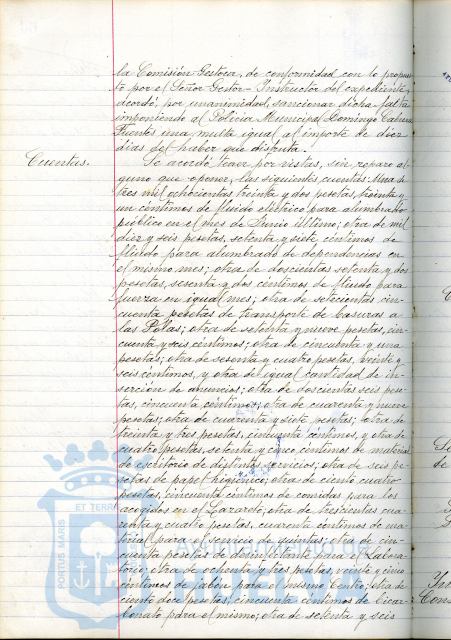 la Comisión Gestora, de conformidad con lo propues-
to por el Señor Gestor-Instructor del expediente,
acordó, por unanimidad, sancionar dicha falta
imponiendo al Policía Municipal Domingo Cabrera
Fuentes una multa igual al importe de diez
días de haber que disfruta.
Cuentas. Se acordó tener por vistas, sin reparo al-
guno que oponer, las siguientes cuentas: Una de
tres mil ochocientas treinta y dos pesetas, treinta y
un céntimos de fluido eléctrico para alumbrado
público en el mes de Junio último; otra de mil
diez y seis pesetas, setenta y siete céntimos de
fluido para alumbrado de dependencias en
el mismo mes; otra de doscientas setenta y dos
pesetas, sesenta y dos céntimos de fluido para
fuerza en igual mes; otra de setecientas cin-
cuenta pesetas de transporte de basuras a
las Pólas; otra de setenta y nueve pesetas, cin-
cuenta y seis céntimos; otra de cincuenta y una
pesetas; otra de sesenta y cuatro pesetas, veinte y
seis céntimos, y otra de igual cantidad de in-
serción de anuncios; otra de doscientas seis pese-
tas, cincuenta céntimos; otra de cuarenta y nueve
pesetas; otra de cuarenta y siete pesetas; otra de
treinta y tres pesetas, cincuenta céntimos, y otra de
cuatro pesetas, setenta y cinco céntimos de material
de escritorio de distintos servicios; otra de seis pe-
setas de papel higiénico; otra de ciento cuatro
pesetas, cincuenta céntimos de comidas para los
acogidos en el Lazareto; otra de trescientas cua-
renta y cuatro pesetas, cuarenta céntimos de ma-
terial para el servicio de quintas; otra de cin-
cuenta pesetas de desinfectante para el Labora-
torio; otra de ochenta y tres pesetas, veinte y cinco
céntimos de jabón para el mismo Centro; otra de
ciento doce pesetas, cincuenta céntimos de bicar-
bonato para el mismo; otra de setenta y seis
ET TERRA
PORTUS MARIS